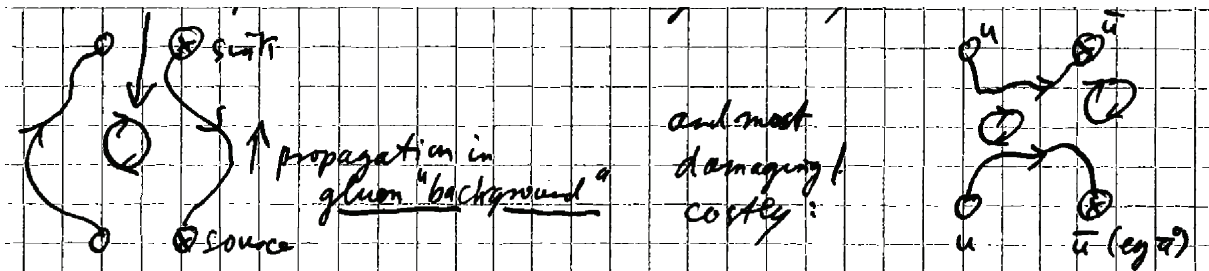 sink
propagation in
gluon "background"
source
and most
damaging/
costly:
u ū
u ū (eg π⁰)